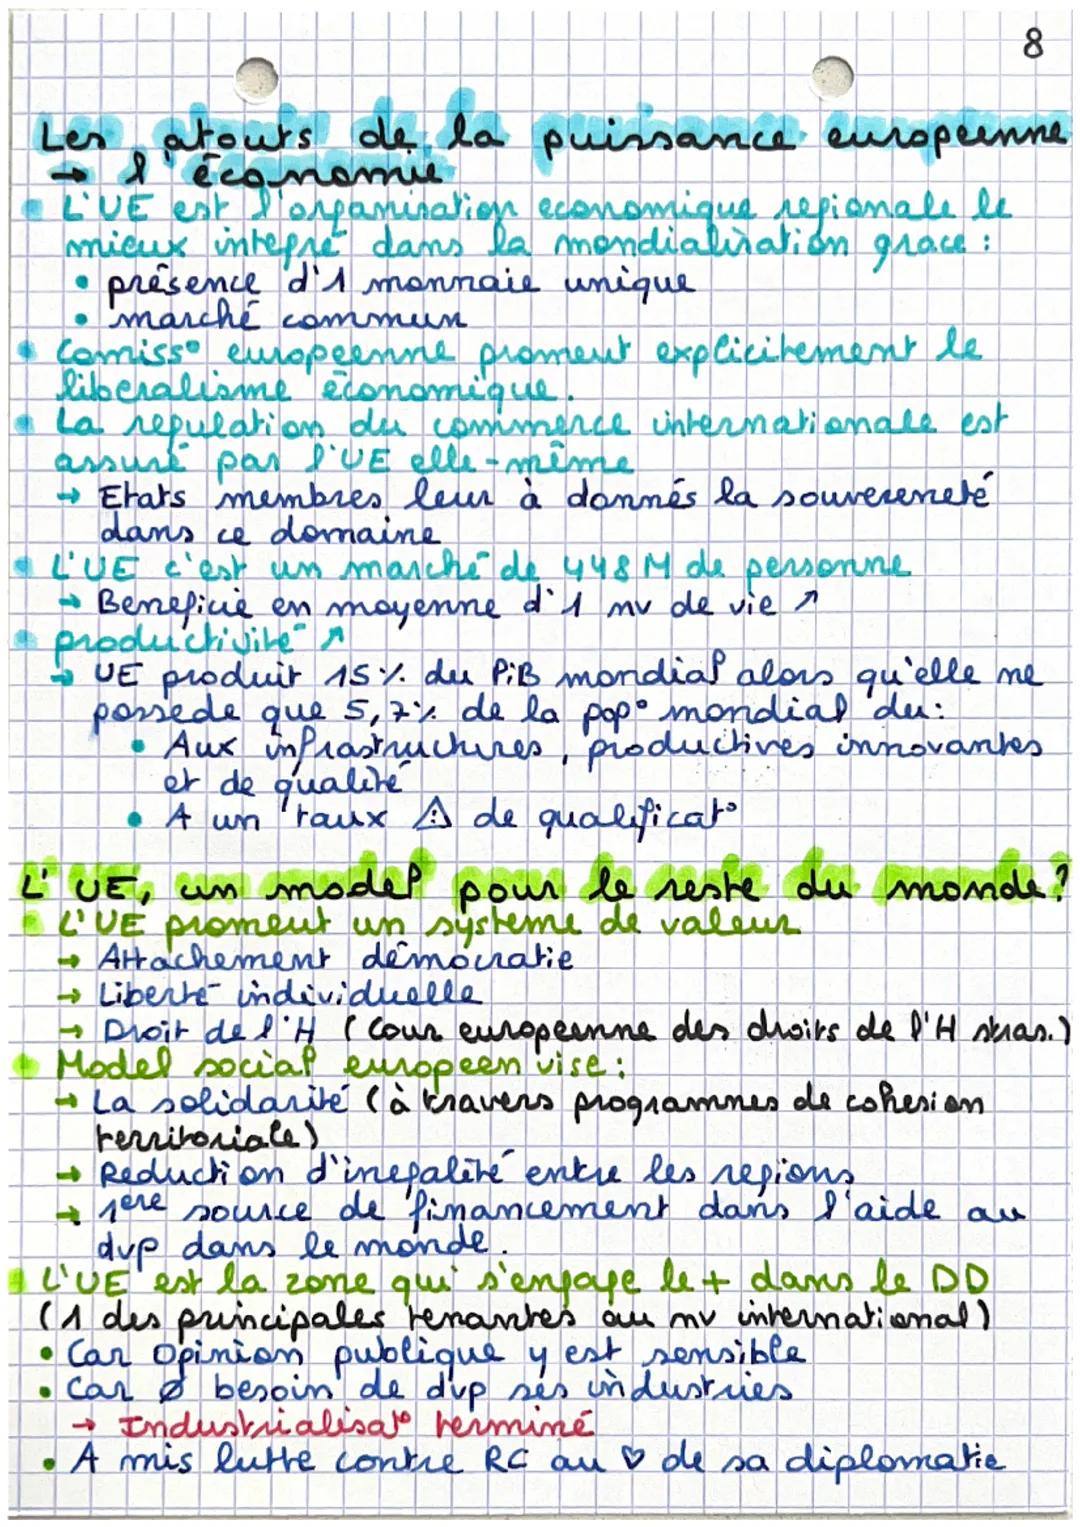 8
Les atouts de la puissance europeenne
→ l'économie
• L'UE est l'organisation economique regionale le
mieux intégré dans la mondialisation grace :
• présence d'1 monnaie unique
• marché commun
• Comiss° europeenne promeut explicitement le
liberalisme économique.
• La regulation du commerce internationale est
assuré par l'UE elle-même
→ Etats membres leur à donnés la souvereneté
dans ce domaine
• L'UE c'est un marché de 448 M de personne
→ Beneficie en moyenne d'1 nv de vie ↗
• productivité ↗
→ UE produit 15% du PiB mondial alors qu'elle ne
possede que 5,7% de la pop° mondial du:
• Aux infrastructures, productives innovantes
et de qualité
• A un taux ⚠ de qualificat°
L'UE, un model pour le reste du monde?
• L'UE promeut un systeme de valeur
→ Attachement démocratie
→ Liberté individuelle
→ Droit de l'H (Cour europeenne des droits de l'H stras.)
• Model social europeen vise :
→ La solidarité (à travers programmes de cohesion
territoriale)
→ Reduction d'inegalité entre les regions
→ 1ere source de financement dans l'aide au
dvp dans le monde.
• L'UE est la zone qui s'engage le + dans le DD
(1 des principales tenantes au nv international)
• Car Opinion publique y est sensible
• Car Ø besoin de dvp ses industries
→ Industrialisat° terminé
• A mis lutte contre RC au ♡ de sa diplomatie